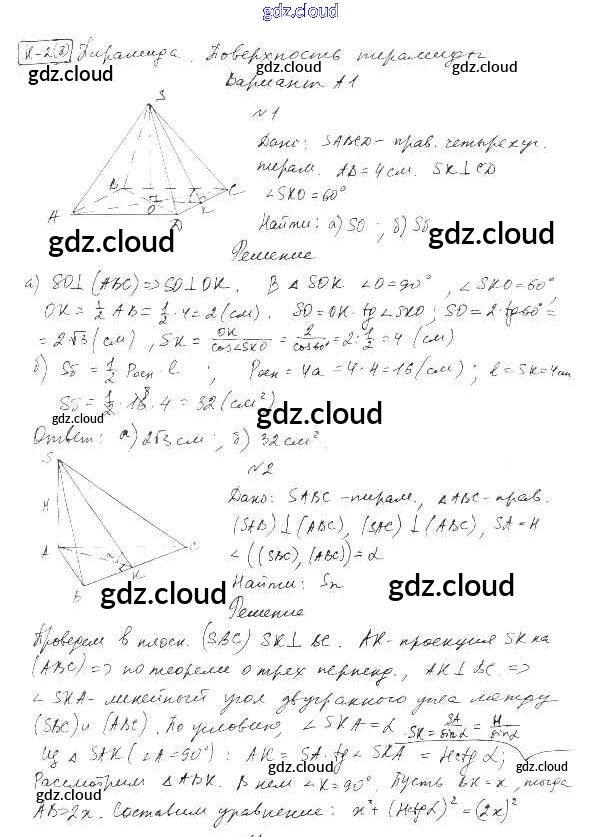 gdz.cloud
К-2(б) Пирамида. Поверхность пирамиды
gdz.cloud
Вариант А1
gdz.cloud
S
B
C
A
O
D
K
№1
Дано: SABCD- прав. четырехуг.
пирам. AB=4см. SK⊥CD
∠SKO=60°
Найти: а) SO ; б) Sб
gdz.cloud
gdz.cloud
Решение
а) SO⊥(ABC)=>SO⊥OK. В △SOK ∠O=90°, ∠SKO=60°
OK=1/2 AB=1/2·4=2(см). SO=OK·tg∠SKO; SO=2·tg60°=
=2√3(см), SK=OK/cos∠SKO=2/cos60°=2:1/2=4 (см)
б) Sб=1/2 Pосн·l ; Pосн=4a=4·4=16(см); l=SK=4см
Sб=1/2·16·4=32(см²)
8
gdz.cloud
gdz.cloud
Ответ: а) 2√3см; б) 32см².
S
H
A
C
B
K
α
№2
Дано: SABC-пирам., △ABC-прав.
(SAB)⊥(ABC), (SAC)⊥(ABC), SA=H
∠((SBC),(ABC))=α
Найти: Sп
gdz.cloud
gdz.cloud
Решение
Проведем в плоск. (SBC) SK⊥BC. AK-проекция SK на
(ABC)=> по теореме о трех перпенд., AK⊥BC.=>
∠SKA-линейный угол двугранного угла между
(SBC) и (ABC). По условию, ∠SKA=α. SK=SA/sinα=H/sinα
gdz.cloud
gdz.cloud
Из △SAK(∠A=90°): AK=SA·tg∠SKA=Hctgα;
Рассмотрим △ABK. В нем ∠K=90°. Пусть BK=x, тогда
gdz.cloud
gdz.cloud
AB=2x. Составим уравнение: x²+(Hctgα)²=(2x)²